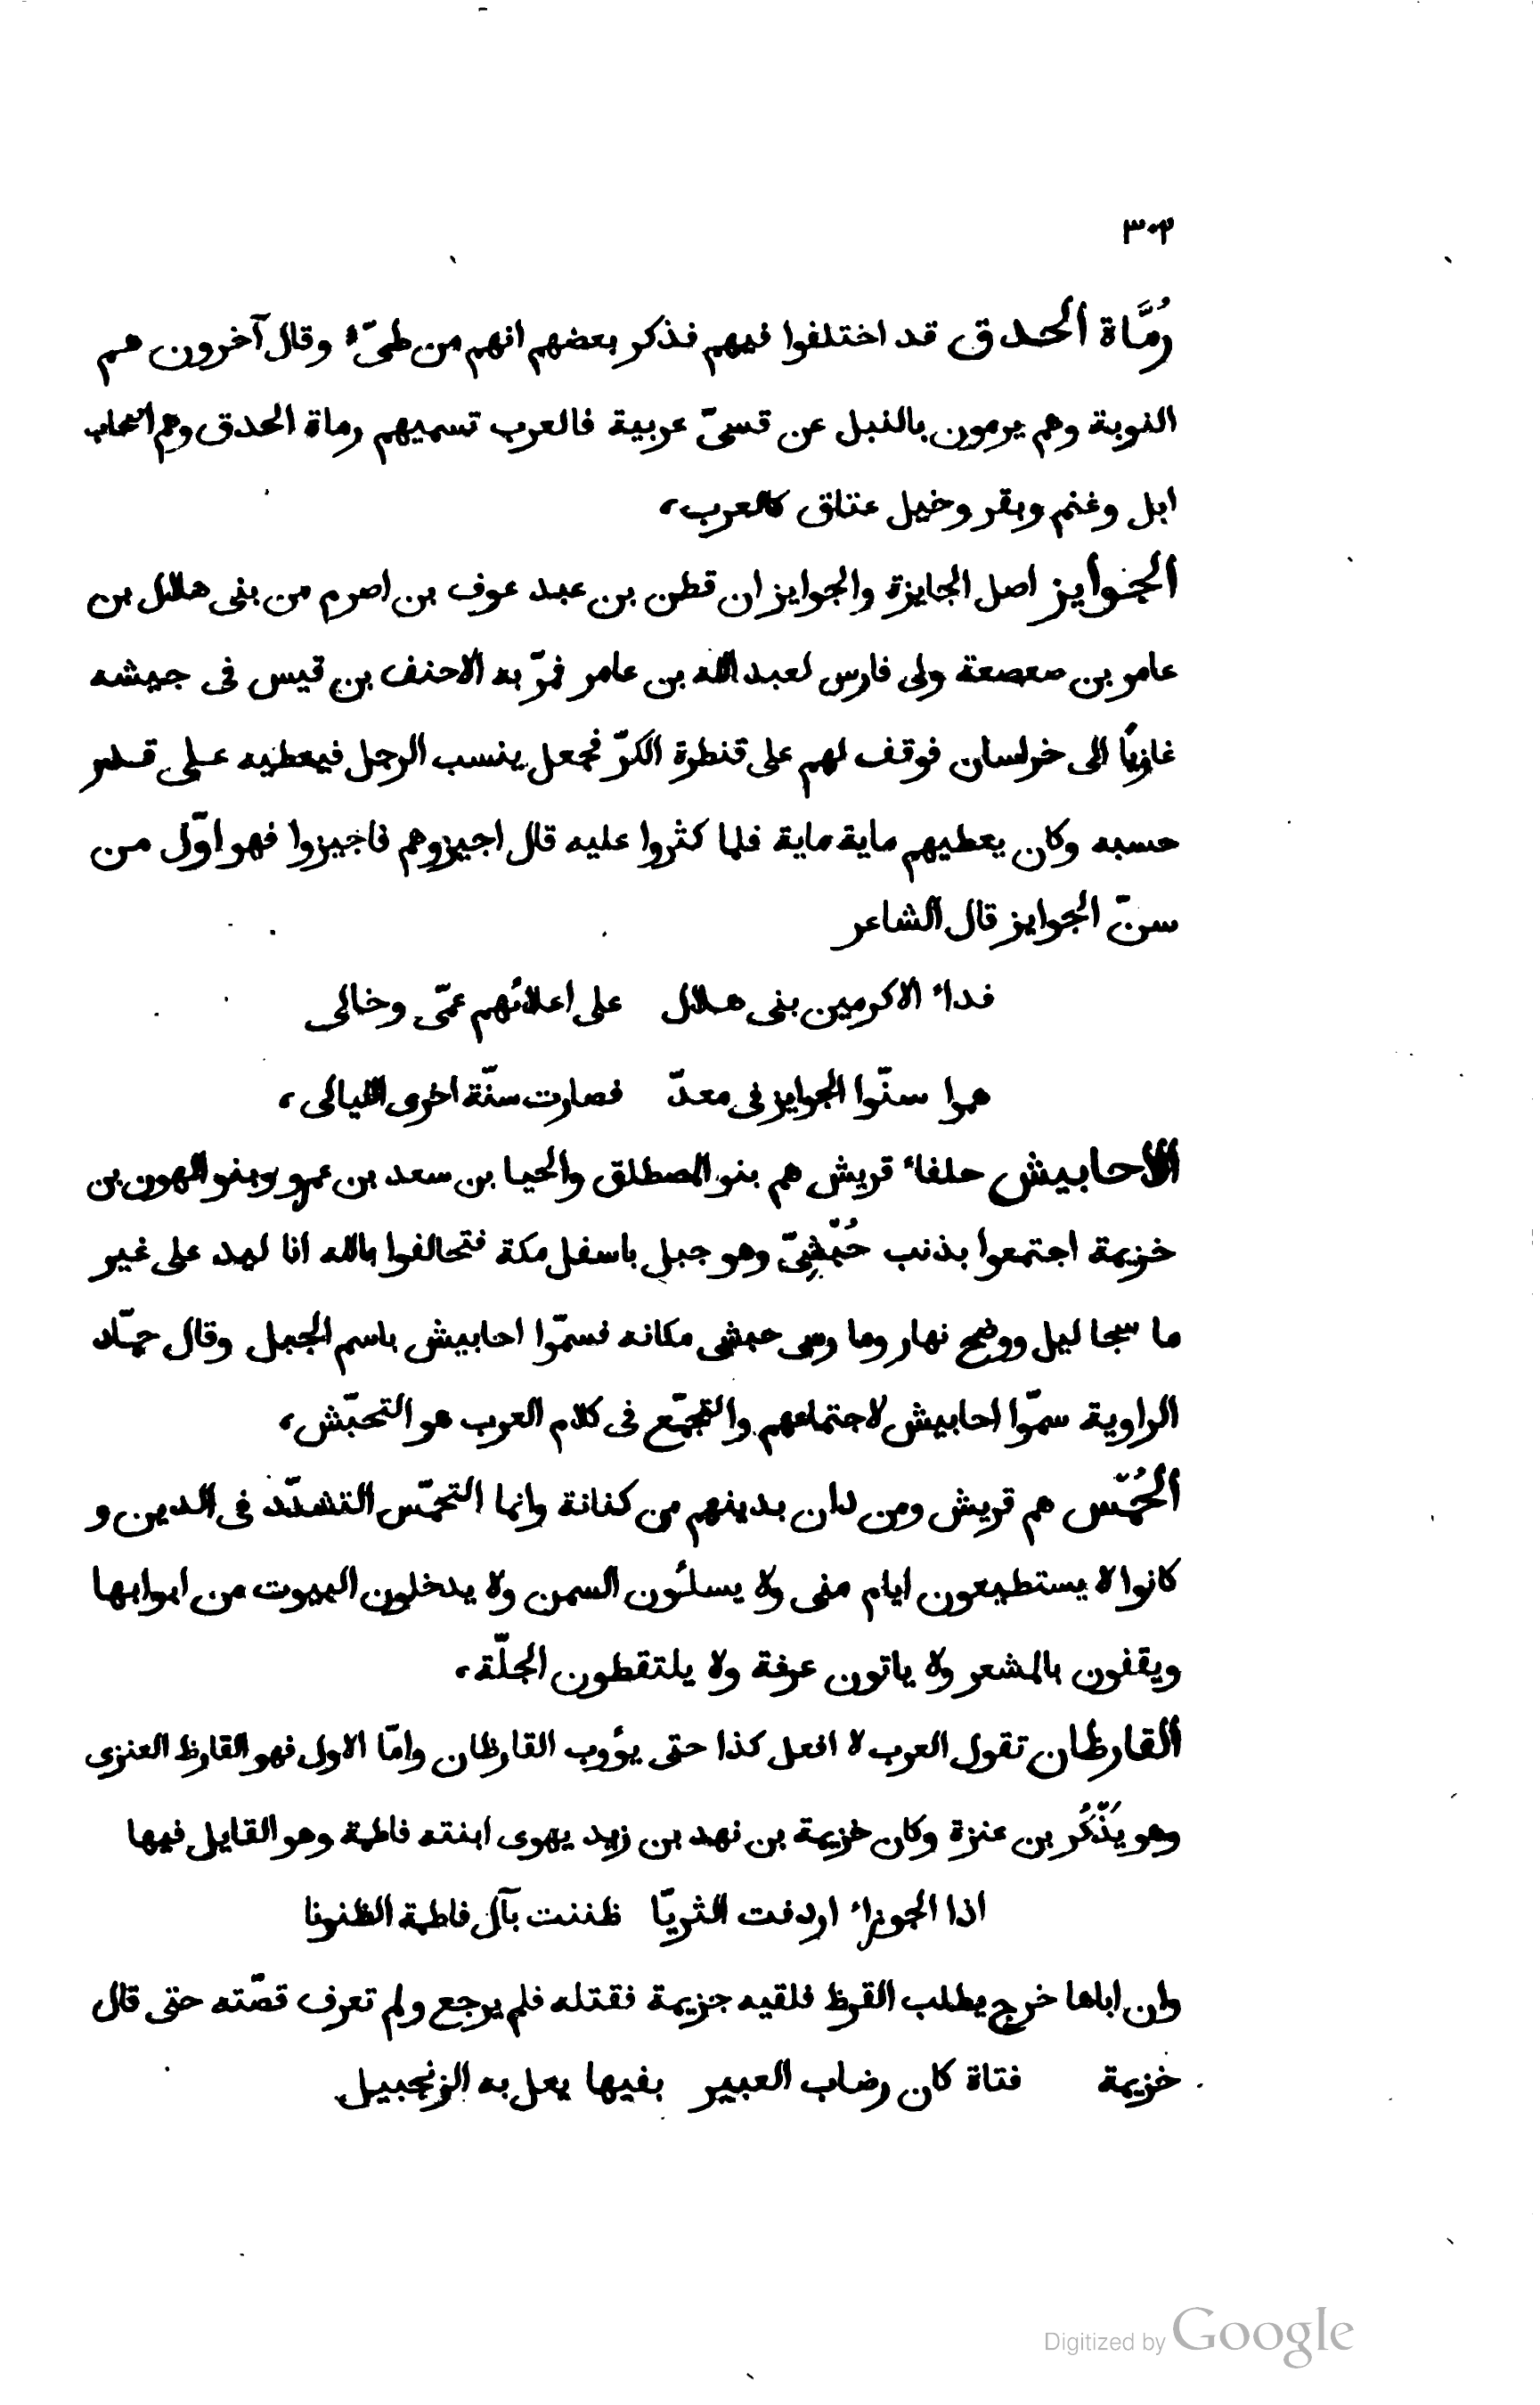 ٣٠٢
رُمَّاة الحدق قد اختلفوا فيهم فذكر بعضهم انهم من طىّء وقال آخرون هم
النوبة وهم يرمون بالنبل عن قسىّ عربية فالعرب تسميهم رماة الحدق وهم اصحاب
ابل وغنم وبقر وخيل عتاق كالعرب،
الجوايز اصل الجايزة والجوايز ان قطن بن عبد عوف بن اصرم من بنى هلال بن
عامر بن صعصعة ولى فارس لعبد الله بن عامر فمرّ به الاحنف بن قيس فى جيشه
غازيًا الى خراسان فوقف لهم على قنطرة الكرّ فجعل ينسب الرجل فيعطيه على قدر
حسبه وكان يعطيهم ماية ماية فلما كثروا عليه قال اجيزوهم فاجيزوا فهو اوّل من
سنّ الجوايز قال الشاعر
فداء الاكرمين بنى هلال على اعلاتهم عمّى وخالى
هموا سنّوا الجوايز فى معدّ فصارت سنّة اخرى الليالى،
الاحابيش حلفاء قريش هم بنو المصطلق والحيا بن سعد بن عمرو وبنو الهون بن
خزيمة اجتمعوا بذنب حُبّشِىّ وهو جبل باسفل مكة فتحالفوا بالله انا ليد على غير
ما سجا ليل ووضح نهار وما رسى حبشى مكانه فسمّوا احابيش باسم الجبل وقال حمّاد
الراوية سمّوا احابيش لاجتماعهم والتجمّع فى كلام العرب هو التحبّش،
الحُمّس هم قريش ومن دان بدينهم من كنانة وانما التحمّس التشدّد فى الدين و
كانوا لا يستطيعون ايام منى ولا يسلئون السمن ولا يدخلون البيوت من ابوابها
ويقفون بالمشعر ولا ياتون عرفة ولا يلتقطون الجلّة،
القارظان تقول العرب لا افعل كذا حتى يؤوب القارظان وامّا الاول فهو القارظ العنزى
وهو يَذّكُر بن عنزة وكان خزيمة بن نهد بن زيد يهوى ابنته فاطمة وهو القايل فيها
اذا الجوزاء اردفت الثريّا ظننت بآل فاطمة الظنونا
وان اباها خرج يطلب القرظ فلقيه جزيمة فقتله فلم يرجع ولم تعرف قصّته حتى قال
خزيمة فتاة كان رضاب العبير بفيها يعل به الزنجبيل
Digitized by Google